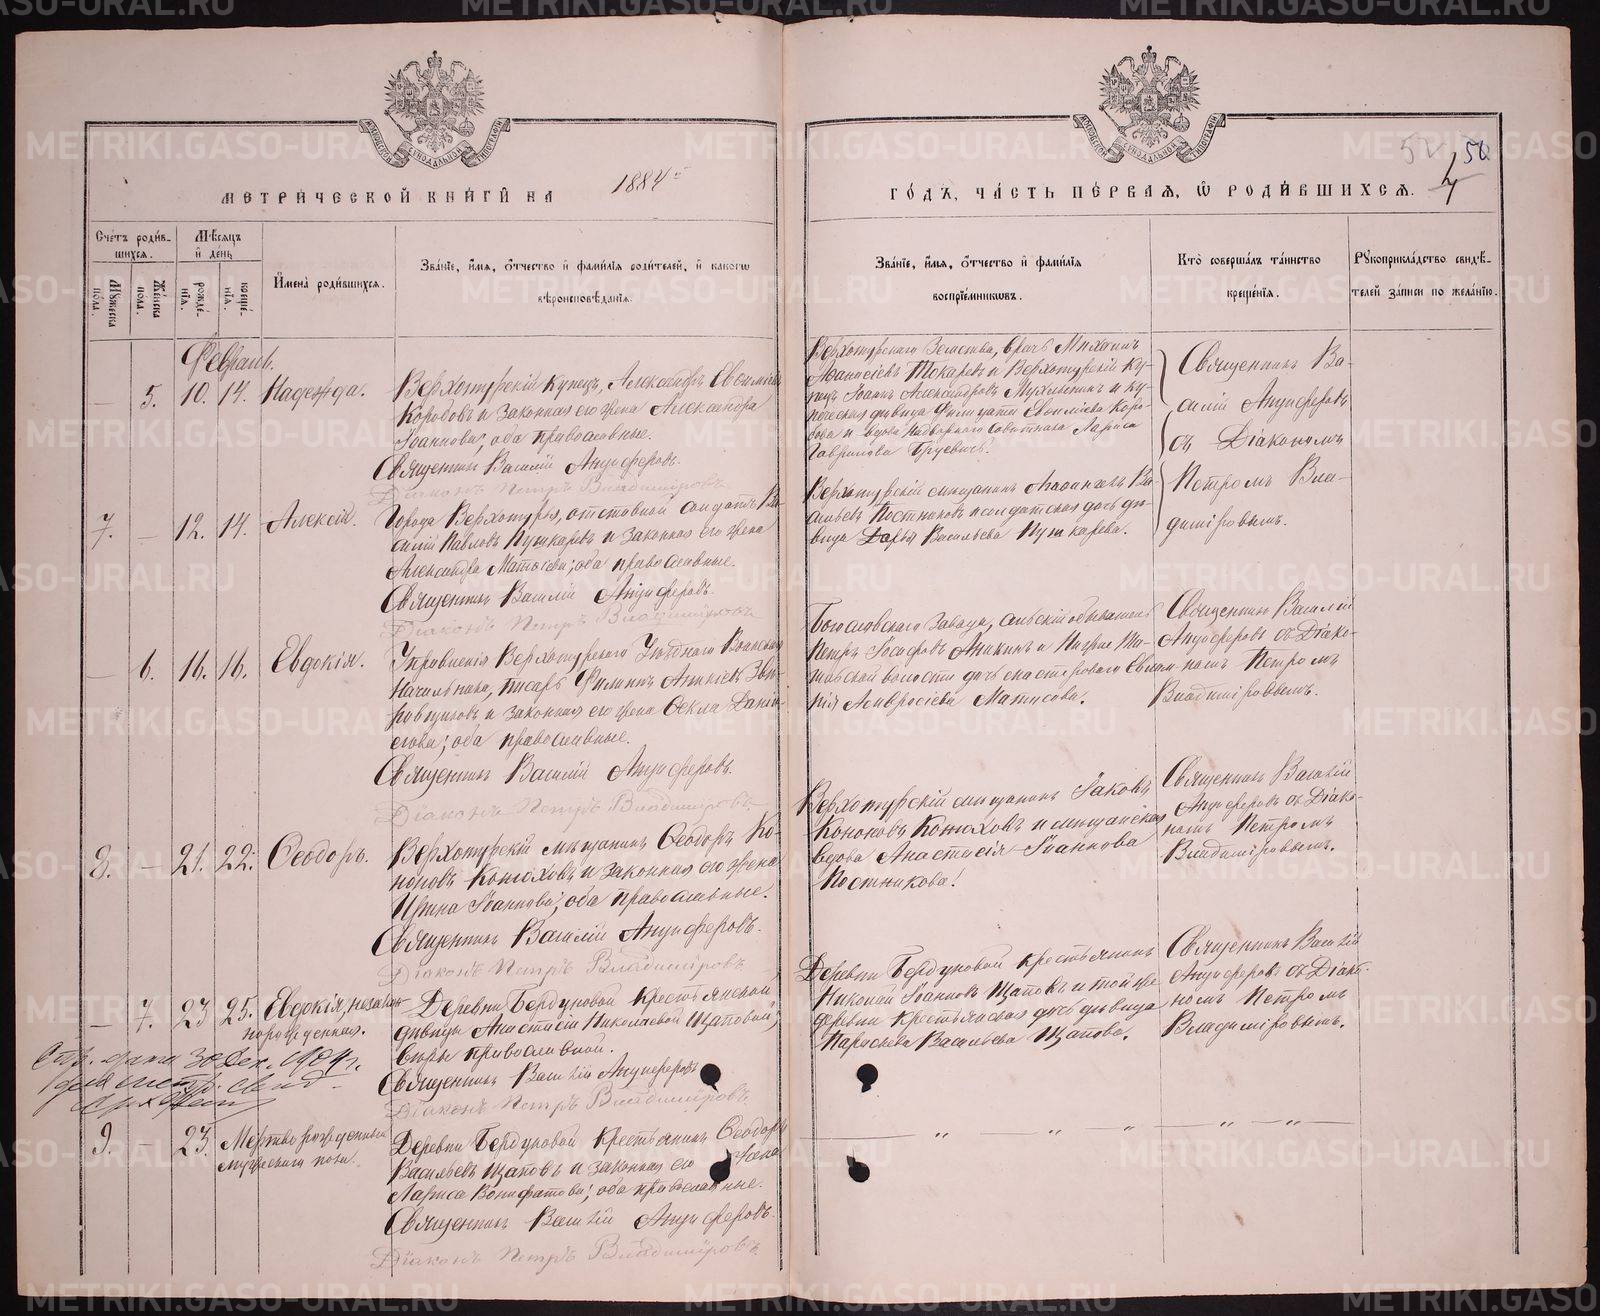 МЕТРИЧЕСКОЙ КНИГИ НА 1884й
ГОДЪ, ЧАСТЬ ПЕРВАЯ, Ѡ РОДИВШИХСЯ.
52 50
4
МОСКОВСКОЙ СУНОДАЛЬНОЙ ТИПОГРАФІИ
МОСКОВСКОЙ СУНОДАЛЬНОЙ ТИПОГРАФІИ
Счетъ родив-
шихся.
Мужеска пола.
Женска пола.
Мѣсяцъ
и день
рожде-
нія.
креще-
нія.
Имена родившихся.
Званіе, имя, отчество и фамилія родителей, и какогѡ
вѣроисповѣданія.
Званіе, имя, отчество и фамилія
воспріемниковъ.
Кто совершалъ таинство
крещенія.
Рукоприкладство свидѣ-
телей записи по желанію.
Февраль.
— 5. 10. 14. Надежда.
Верхотурскій купецъ, Александръ Евѳиміевъ
Коробовъ и законная его жена Александра
Іоаннова; оба православные.
Священникъ Василій Анциферовъ.
Діаконъ Петръ Владиміровъ
Верхотурскаго Земства, врачъ Михаилъ
Аѳанасіевъ Токаревъ и Верхотурскій ку-
пецъ Іоаннъ Александровъ Мухлынинъ и ку-
печеская дѣвица Филицата Евѳиміева Коро-
бова и вдова Надворнаго Совѣтника Лариса
Гаврилова
Священникъ Ва-
силій Анциферовъ
съ Діакономъ
Петромъ Вла-
диміровымъ.
7. — 12. 14. Алексій.
Города Верхотурья, отставной солдатъ Ва-
силій Павловъ Пушкаревъ и законная его жена
Александра Матѳіева; оба православные.
Священникъ Василій Анциферовъ.
Діаконъ Петръ Владиміровъ
Верхотурскій мѣщанинъ Аѳанасій Ва-
сильевъ Постниковъ и солдатская дочь дѣ-
вица Дарья Васильева Пушкарева.
— 6. 16. 16. Евдокія.
Управленія Верхотурскаго Уѣзднаго Воинскаго
Начальника, писарь Филиппъ Аникіевъ
и законная его жена Ѳекла Дани-
лова; оба православные.
Священникъ Василій Анциферовъ.
Діаконъ Петръ Владиміровъ
Богословскаго Завода, сельскій обыватель
Петръ Іосифовъ Аникинъ и
волости дочь мастероваго Евлам-
пія Амвросіева
Священникъ Василій
Анциферовъ съ Діако-
номъ Петромъ
Владиміровымъ.
8. — 21. 22. Ѳеодоръ.
Верхотурскій мѣщанинъ Ѳеодоръ Ко-
ноновъ Конюховъ и законная его жена
Ирина Іоаннова; оба православные.
Священникъ Василій Анциферовъ.
Діаконъ Петръ Владиміровъ
Верхотурскій мѣщанинъ Іаковъ
Кононовъ Конюховъ и мѣщанская
вдова Анастасія Іоаннова
Постникова.
Священникъ Василій
Анциферовъ съ Діако-
номъ Петромъ
Владиміровымъ.
— 7. 23 25. Евдокія, незакон-
норожденная.
Деревни Бердуновой крестьянской
дѣвицы Анастасіи Николаевой Щаповой,
вѣры православной.
Священникъ Василій Анциферовъ
Діаконъ Петръ Владиміровъ
Деревни Бердуновой крестьянинъ
Николай Іоанновъ Щаповъ и той же
деревни крестьянская дочь дѣвица
Параскева Васильева Щапова.
Священникъ Василій
Анциферовъ съ Діако-
номъ Петромъ
Владиміровымъ.
30 Дек. 1904 г.
9. — 23. Мертво рожденный
мужескаго пола.
Деревни Бердуновой крестьянинъ Ѳеодоръ
Васильевъ Щаповъ и законная его жена
Лариса Вонифатова; оба православные.
Священникъ Василій Анциферовъ.
Діаконъ Петръ Владиміровъ
METRIKI.GASO-URAL.RU